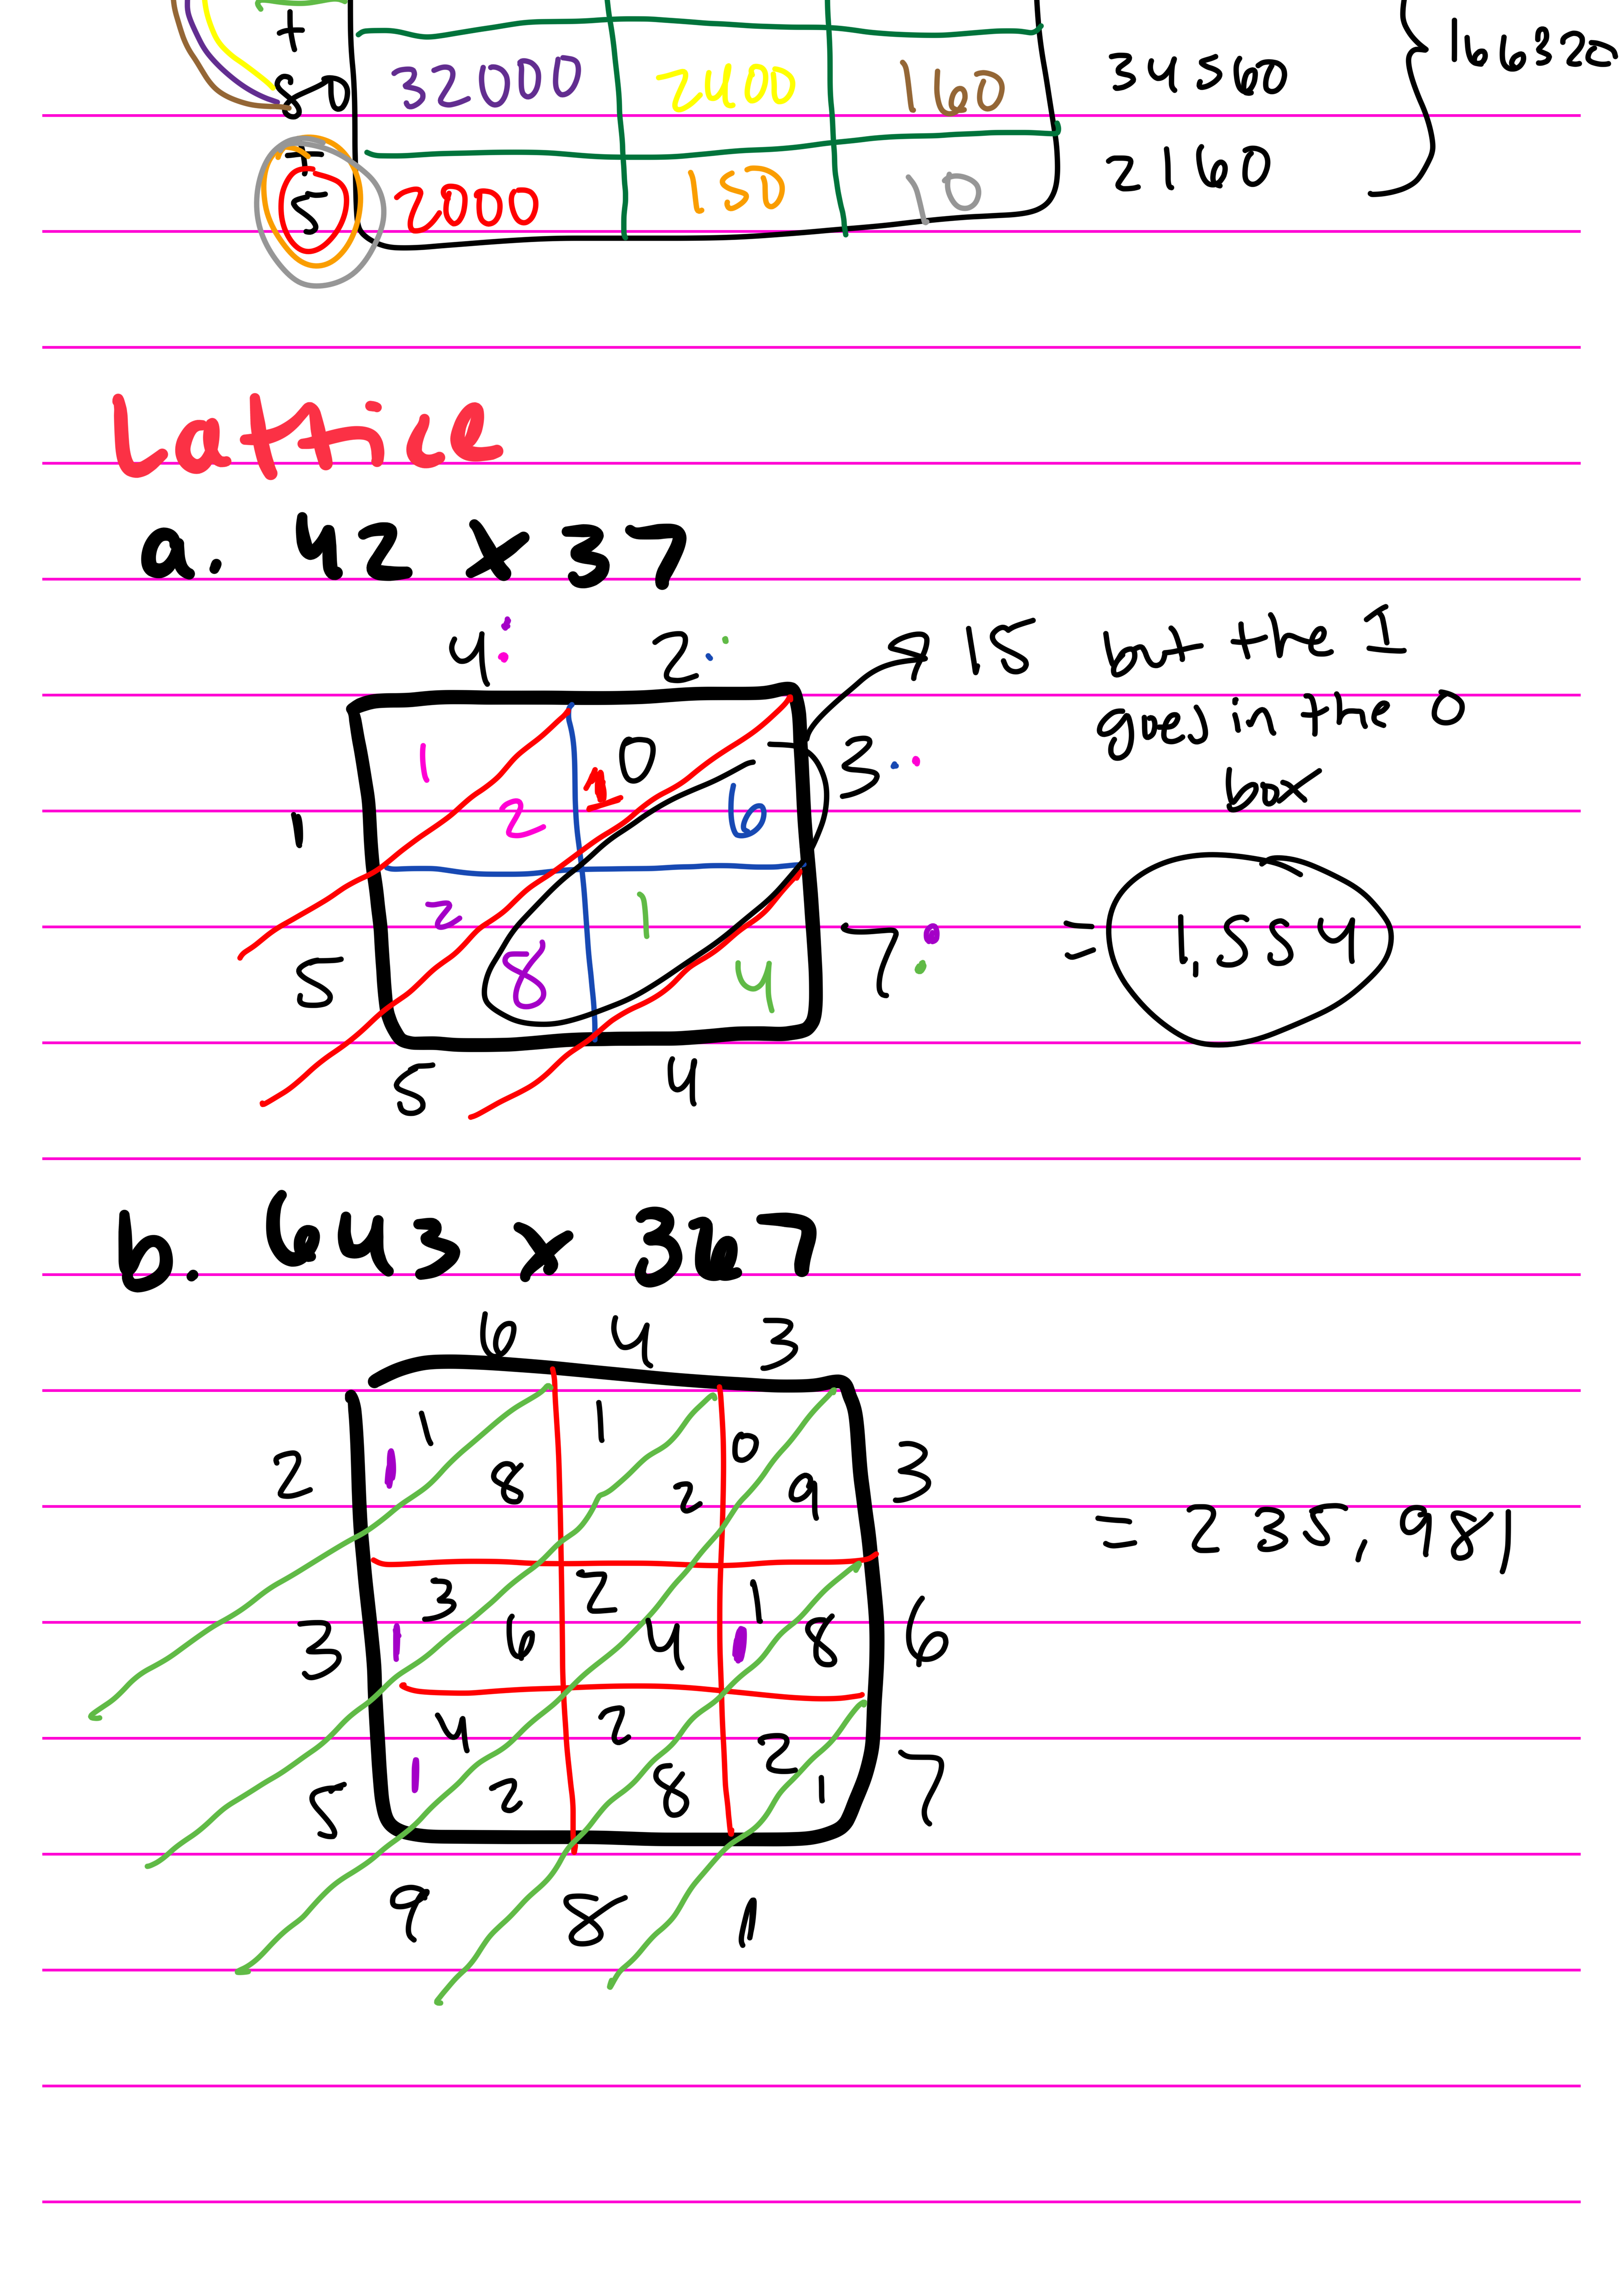 +
80 32000 2400 160 34560 166320
+
5 2000 150 10 2160
Lattice
a. 42 x 37
4 2 15 but the 1
goes in the 0
box
1 0 3
1 2 1 6
2 1
5 8 4 7 = 1,554
5 4
b. 643 x 367
6 4 3
1 1 0
2 1 8 2 9 3
= 235,981
3 2 1
3 1 6 4 1 8 6
4 2 2
5 1 2 8 1 7
9 8 1